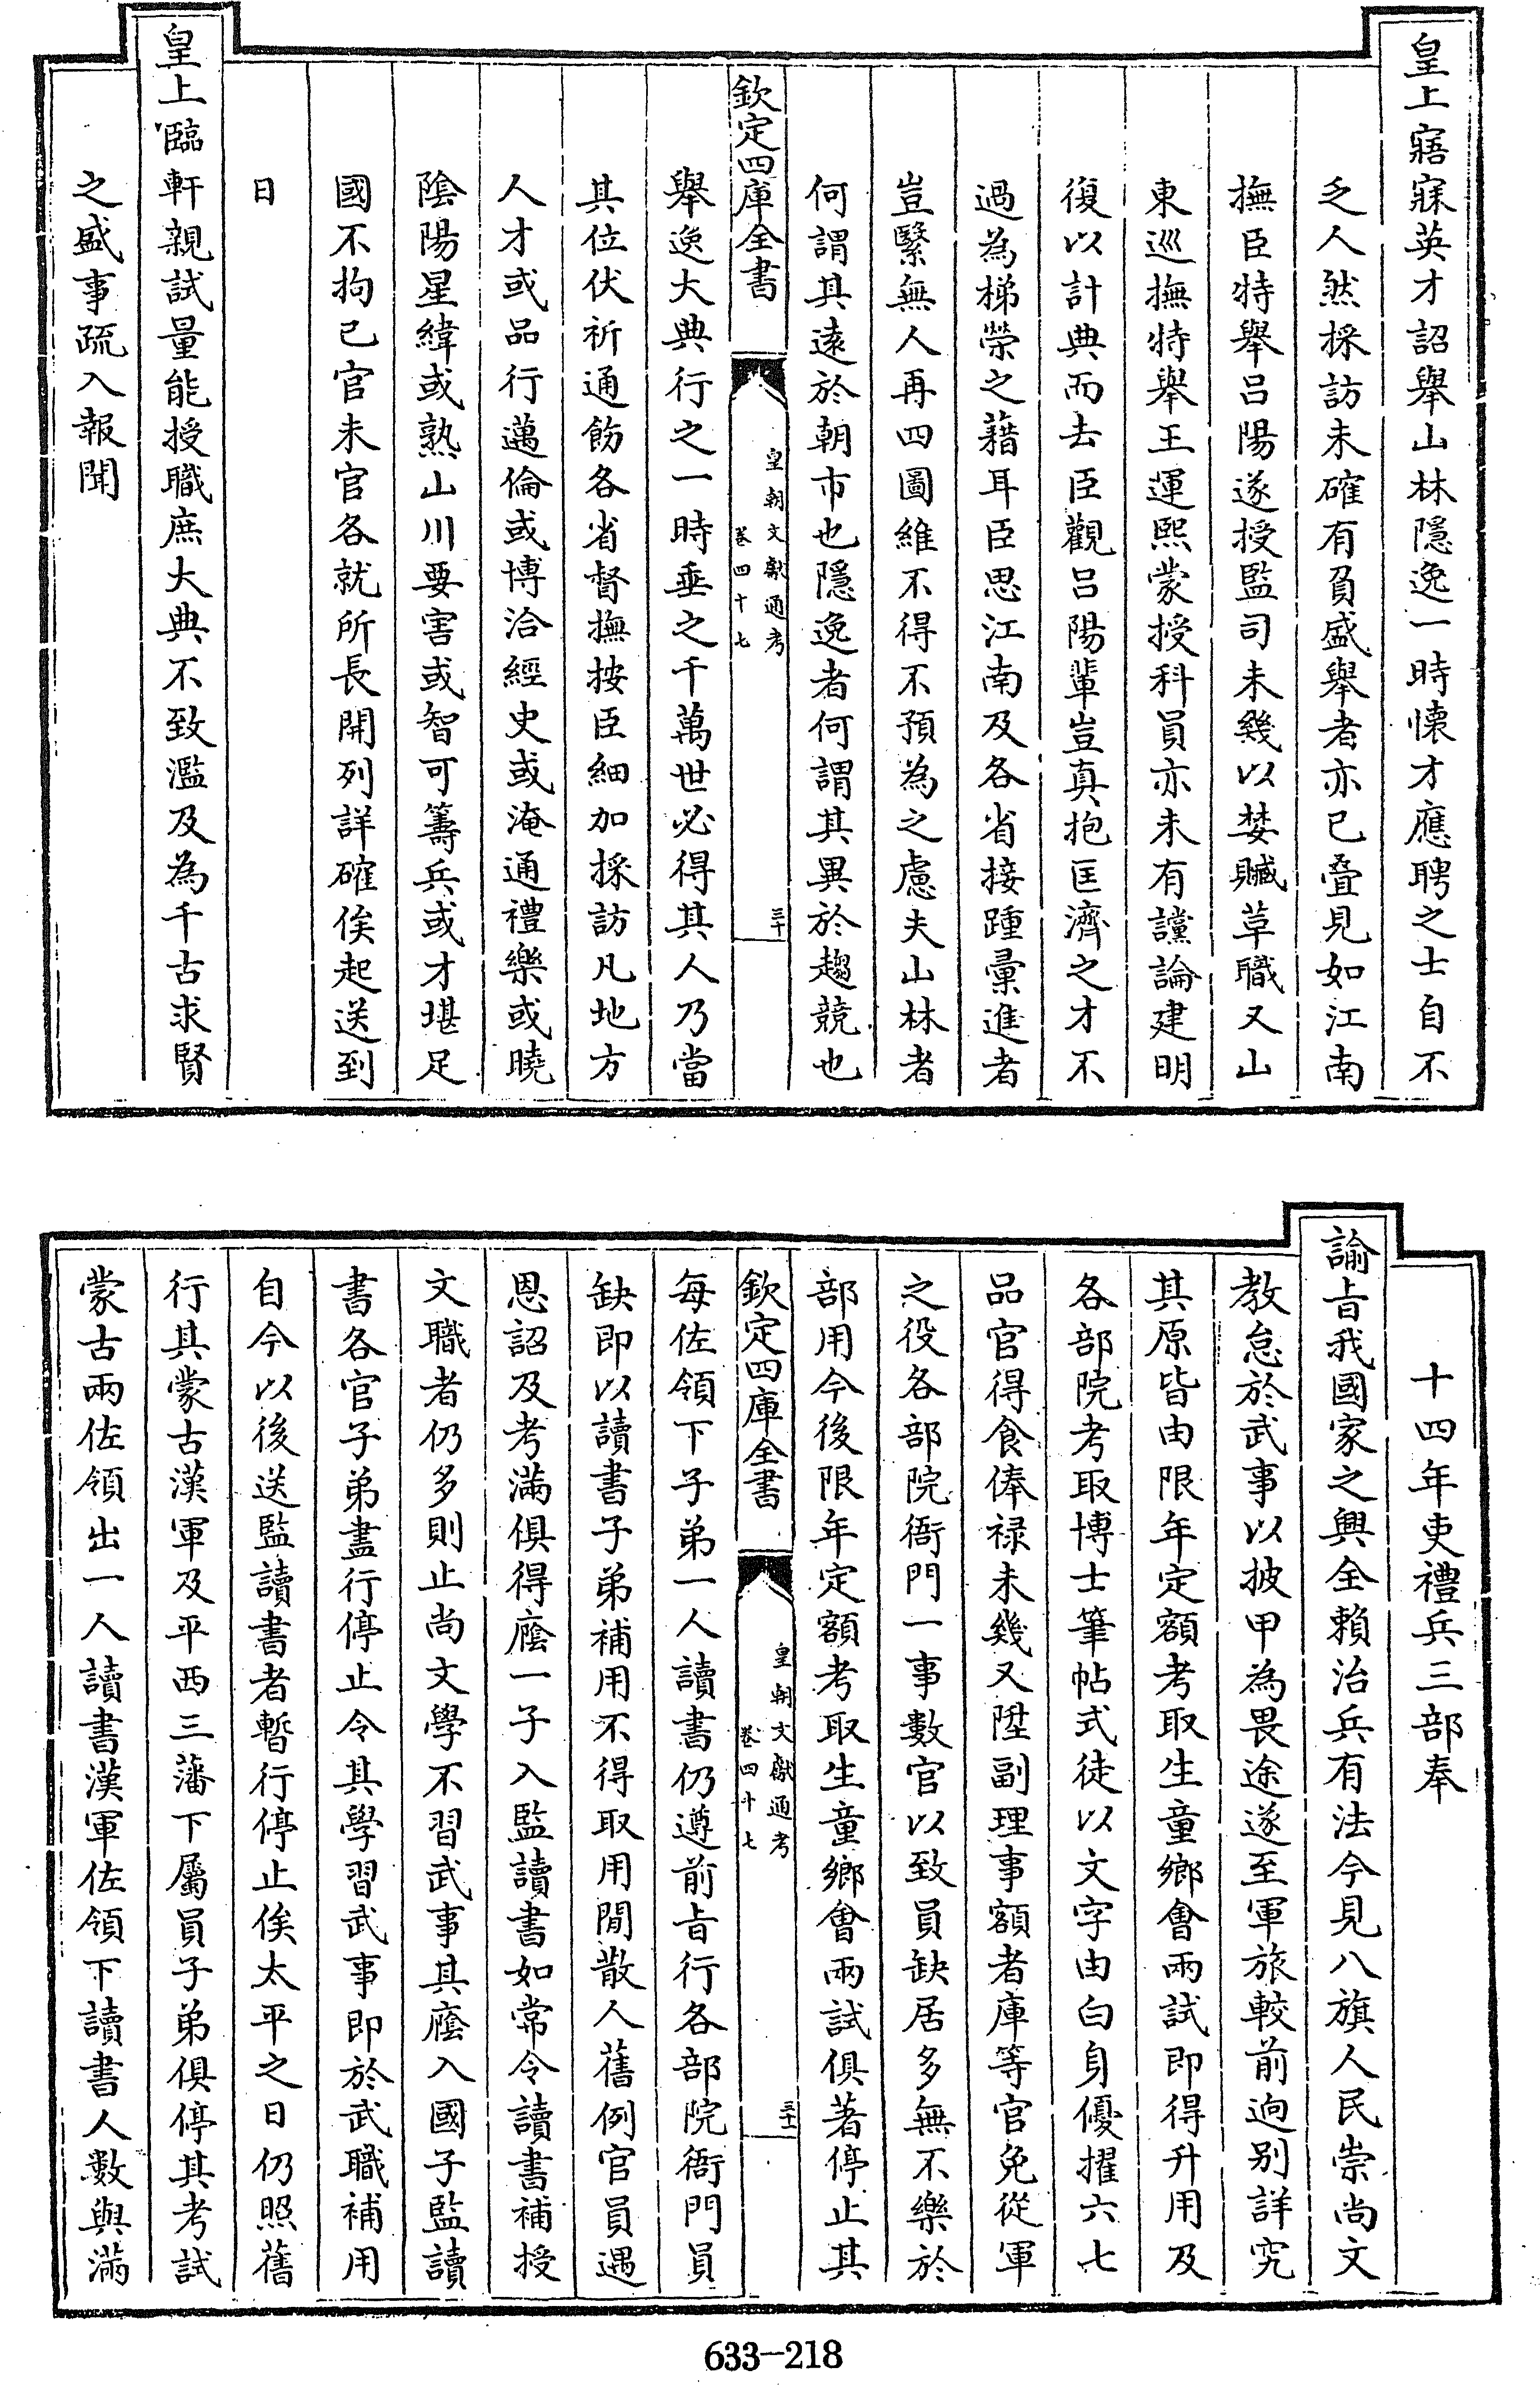 皇上寤寐英才詔舉山林隱逸一時懐才應聘之士自不
乏人然採訪未確有負盛舉者亦已疊見如江南
撫臣特舉吕陽遂授監司未幾以婪贓草職又山
東巡撫特舉王運熙蒙授科員亦未有讜論建明
復以計典而去臣觀吕陽輩豈真抱匡濟之才不
過為梯榮之藉耳臣思江南及各省接踵彚進者
豈繄無人再四圖維不得不預為之慮夫山林者
何謂其遠於朝市也隱逸者何謂其異於趨競也
欽定四庫全書
皇朝文獻通考
卷四十七
三十
舉逸大典行之一時垂之千萬世必得其人乃當
其位伏祈通飭各省督撫按臣細加採訪凡地方
人才或品行邁倫或博洽經史或淹通禮樂或曉
陰陽星緯或熟山川要害或智可籌兵或才堪足
國不拘已官未官各就所長開列詳確俟起送到
日
皇上臨軒親試量能授職庶大典不致濫及為千古求賢
之盛事疏入報聞
十四年吏禮兵三部奉
諭旨我國家之興全賴治兵有法今見八旗人民崇尚文
教怠於武事以披甲為畏途遂至軍旅較前迥别詳究
其原皆由限年定額考取生童鄉會兩試即得升用及
各部院考取博士筆帖式徒以文字由白身優擢六七
品官得食俸禄未幾又陞副理事額者庫等官免從軍
之役各部院衙門一事數官以致員缺居多無不樂於
部用今後限年定額考取生童鄉會兩試俱著停止其
欽定四庫全書
皇朝文獻通考
卷四十七
三十一
每佐領下子弟一人讀書仍遵前旨行各部院衙門員
缺即以讀書子弟補用不得取用閒散人舊例官員遇
恩詔及考滿俱得廕一子入監讀書如常令讀書補授
文職者仍多則止尚文學不習武事其廕入國子監讀
書各官子弟盡行停止令其學習武事即於武職補用
自今以後送監讀書者暫行停止俟太平之日仍照舊
行其蒙古漢軍及平西三藩下屬員子弟俱停其考試
蒙古兩佐領出一人讀書漢軍佐領下讀書人數與滿
633-218